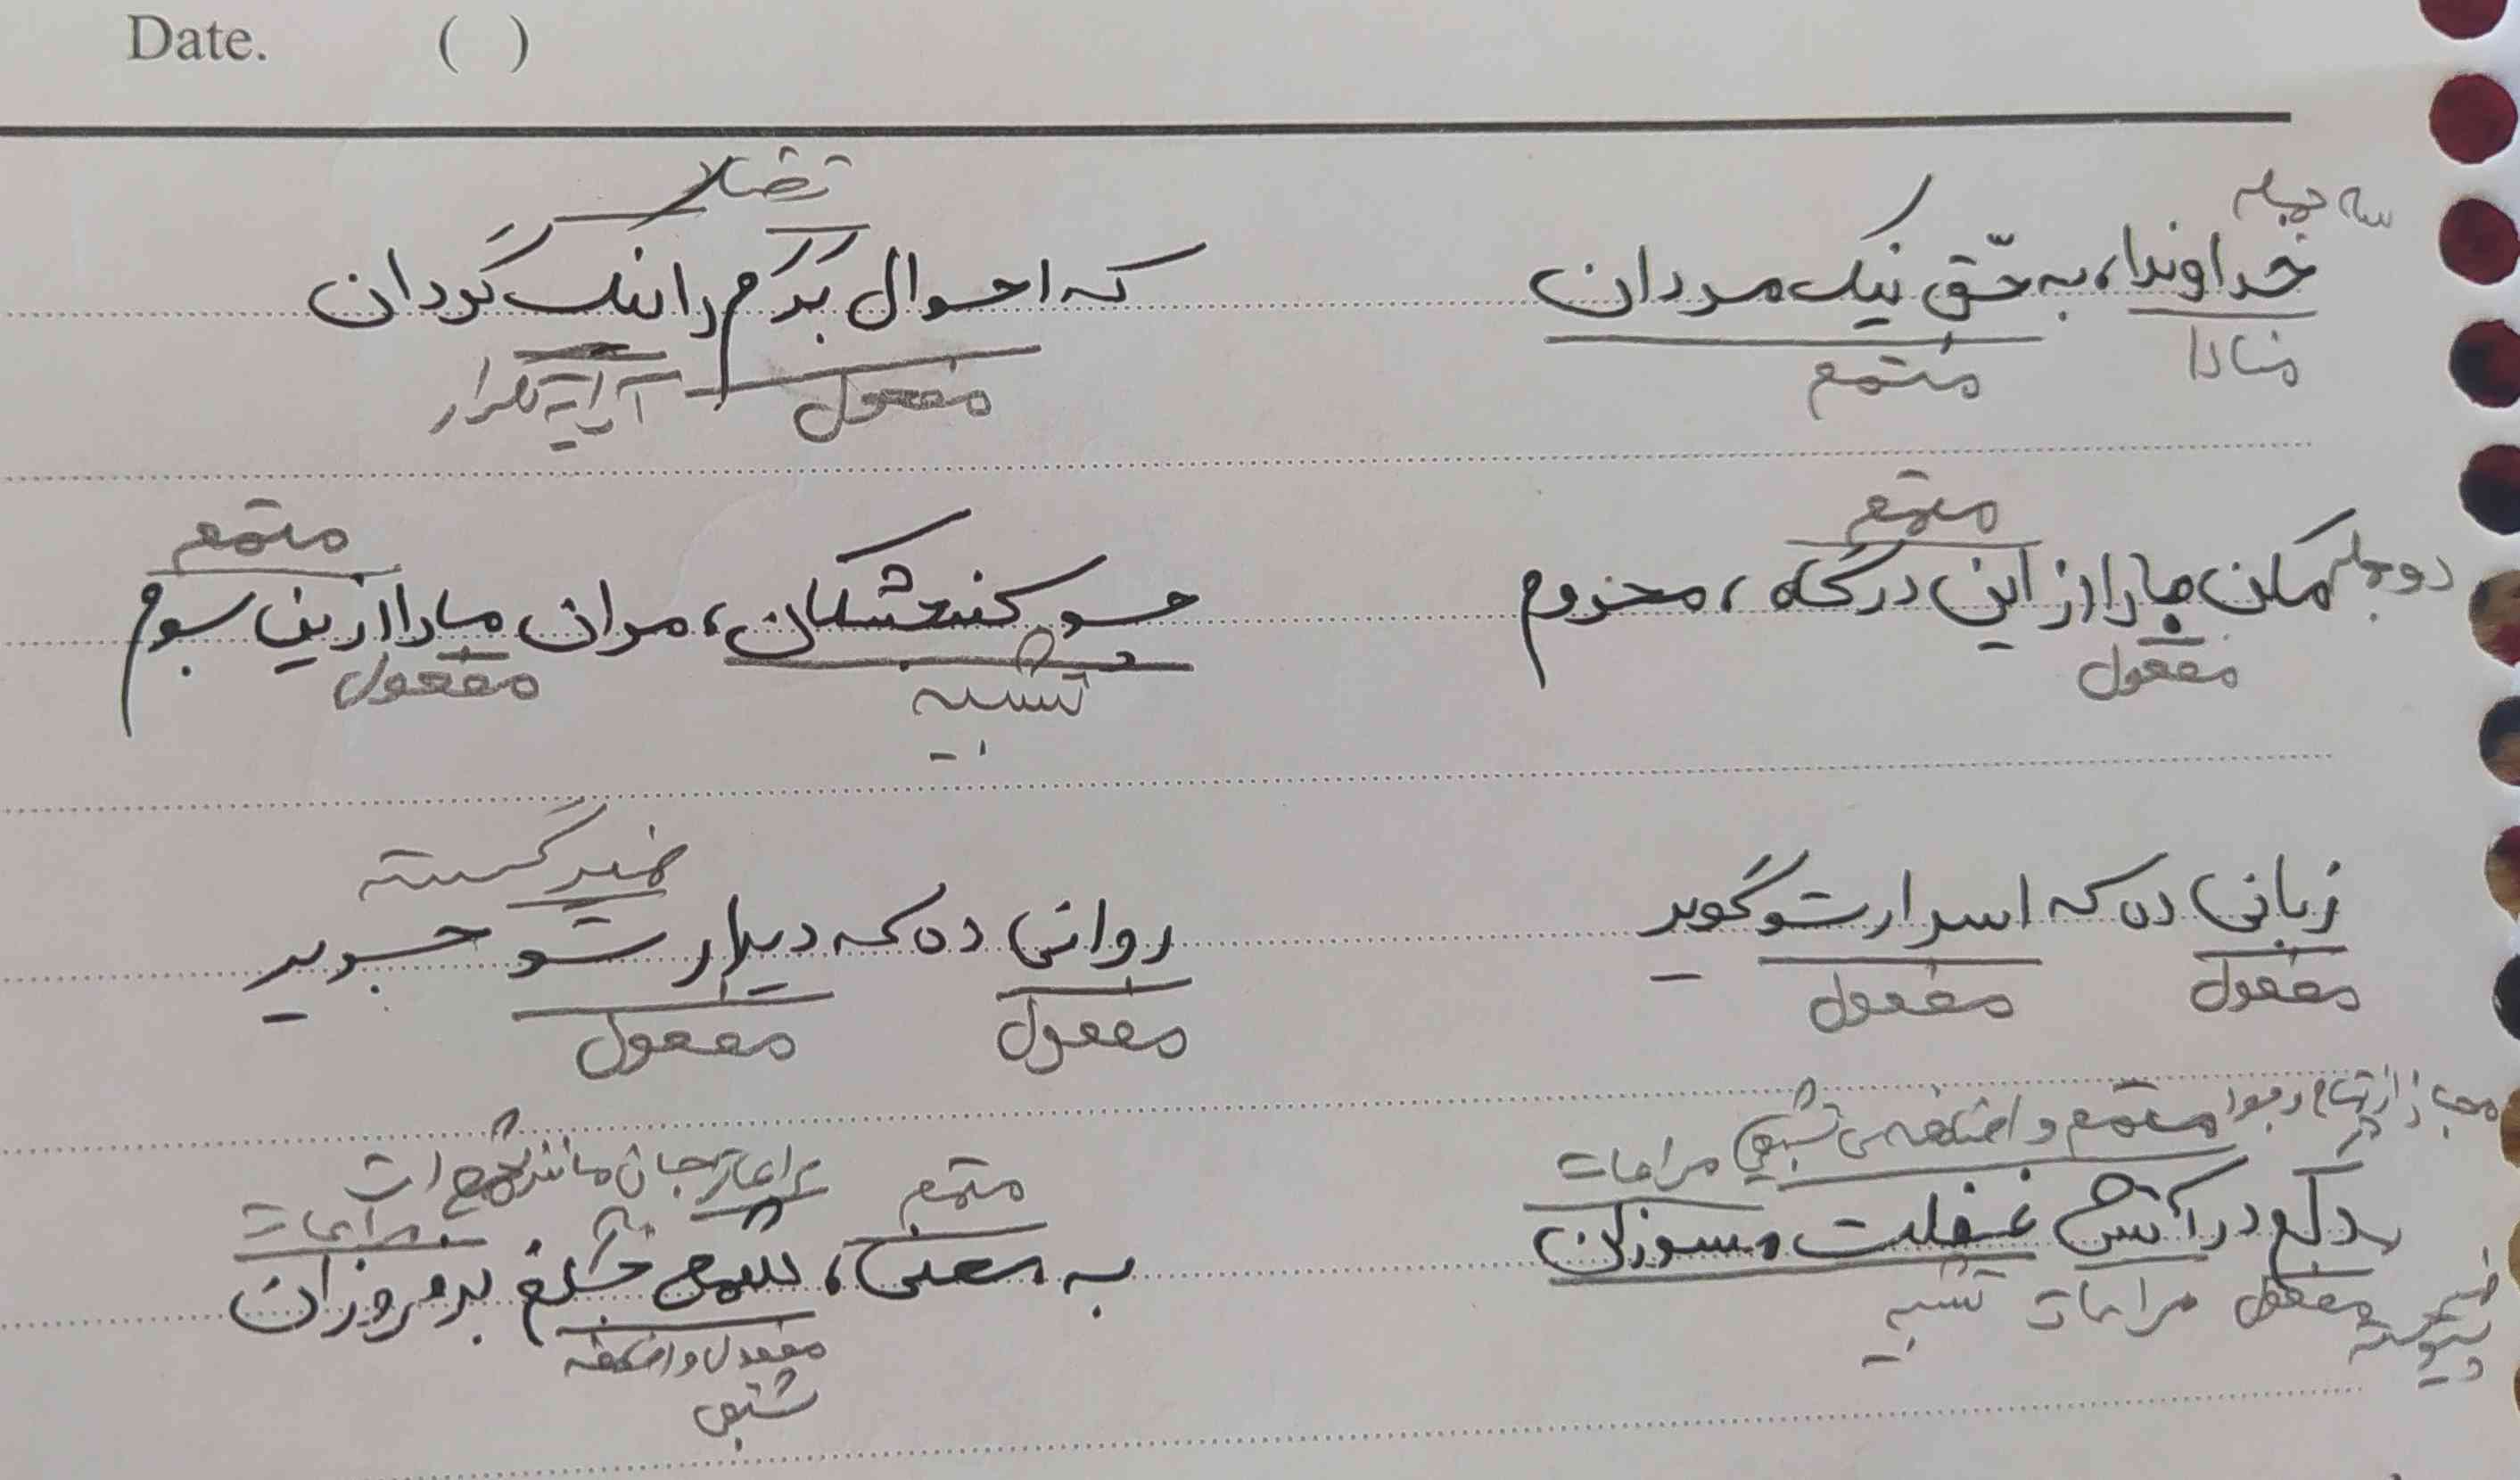 Date. ( )
تضاد
سه جمله
خداوندا، به حقّ نیک مردان که احوال بَدَم را نیک گردان
منادا متمم مفعول آرایه تکرار
متمم متمم
دو جمله مکن ما را از این درگاه، محروم چو گنجشکان، مران ما را ازین بوم
مفعول تشبیه مفعول
ضمیر گسسته
زبانی ده که اسرار تو گوید روانی ده که دیدار تو جوید
مفعول مفعول مفعول مفعول
مجاز از تمام وجود متمم و اضافه‌ی تشبیهی مراعات متمم جان مانند شمع است مراعات
دلم در آتش غفلت مسوزان به معنی، شمع جانم برفروزان
ضمیر پیوسته مفعول مراعات تشبیه مفعول و اضافه
تشبیهی